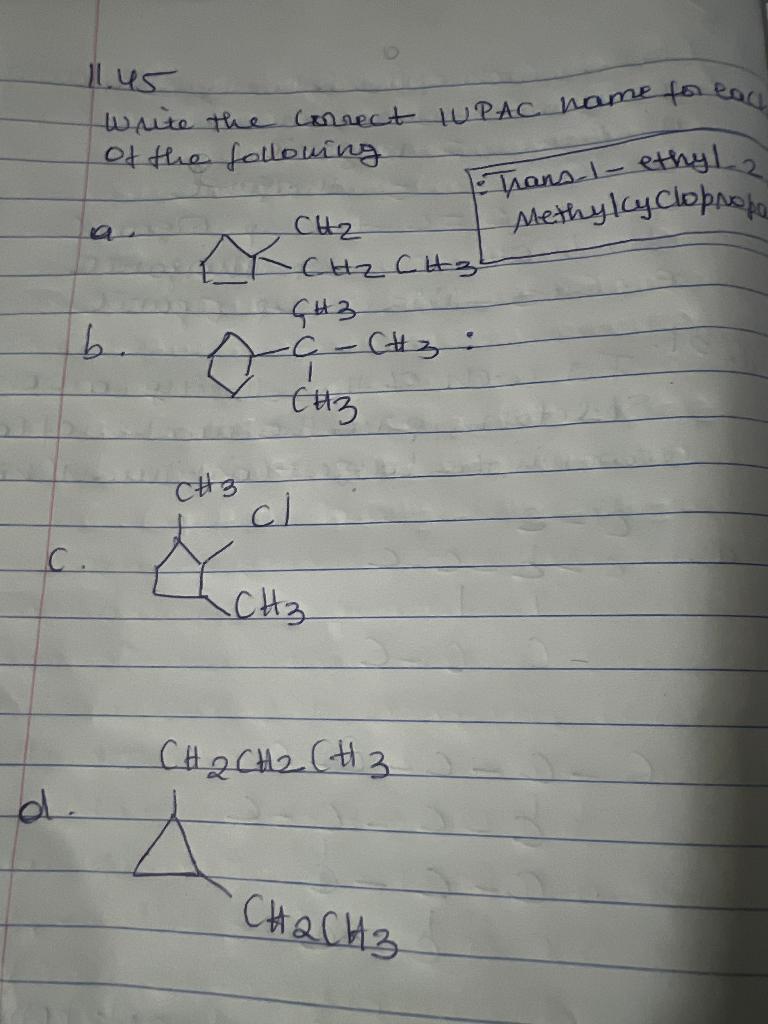 11.45
Write the correct IUPAC name for each
of the following
: Trans-1-ethyl-2
Methylcyclopropa
a.
CH2
CH2 CH3
b.
CH3
C - CH3 :
CH3
c.
CH3
Cl
CH3
d.
CH2CH2CH3
CH2CH3